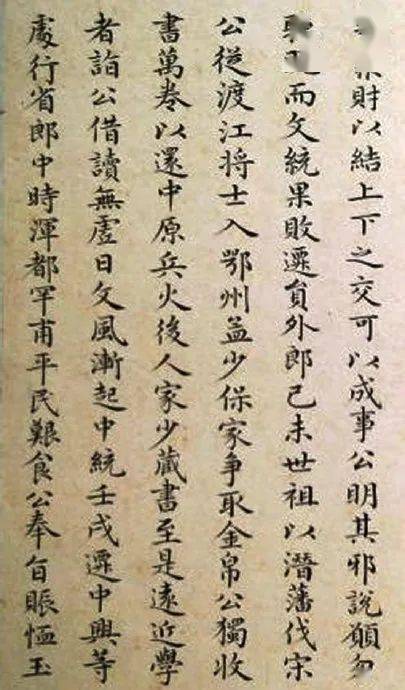 財以結上下之交可以成事公明其邪說願勿
而文統果敗遷員外郎己未世祖以潛藩伐宋
公從渡江將士入鄂州孟少保家爭取金帛公獨收
書萬卷以還中原兵火後人家少藏書至是遠近學
者詣公借讀無虛日文風漸起中統壬戌遷中興等
處行省郎中時渾都罕甫平民艱食公奉旨賑恤玉